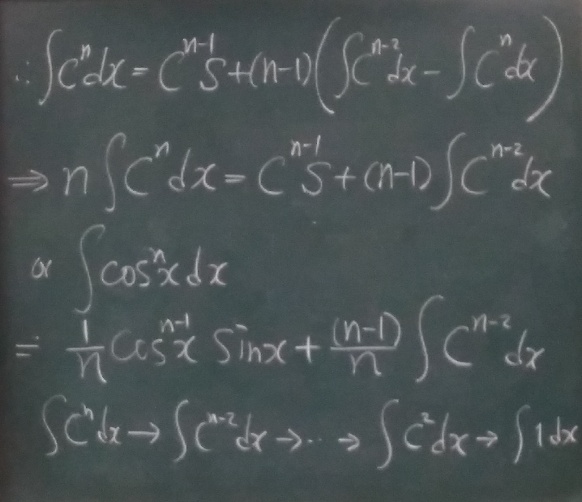 ∴ ∫Cⁿdx = Cⁿ⁻¹S + (n-1)(∫Cⁿ⁻²dx - ∫Cⁿdx)
⇒ n∫Cⁿdx = Cⁿ⁻¹S + (n-1)∫Cⁿ⁻²dx
or ∫cosⁿx dx
= 1/n Cosⁿ⁻¹x Sinx + (n-1)/n ∫Cⁿ⁻²dx
∫Cⁿdx → ∫Cⁿ⁻²dx → ·· → ∫C²dx → ∫1dx